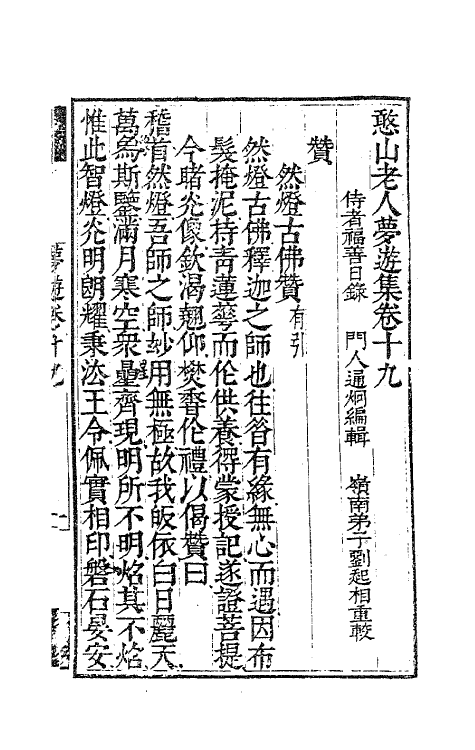 憨山老人夢遊集卷十九
侍者福善日錄　門人通炯編輯　嶺南弟子劉起相重較
贊
然燈古佛贊有引
然燈古佛釋迦之師也往昝有緣無心而遇因布
髮掩泥持靑蓮蕚而作供養得蒙授記遂證菩提
今睹炗像欽渴翹仰焚香作禮以偈贊曰
稽首然燈吾師之師玅用無極故我皈依白日麗天
萬象斯鑒滿月寒空衆星齊現明所不明炤其不炤
惟此智燈炗明朗耀秉法王令佩實相印磐石晏安
夢遊卷十九
一